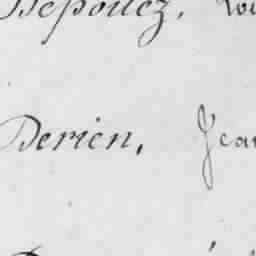 Depouez,
Derien, Jean